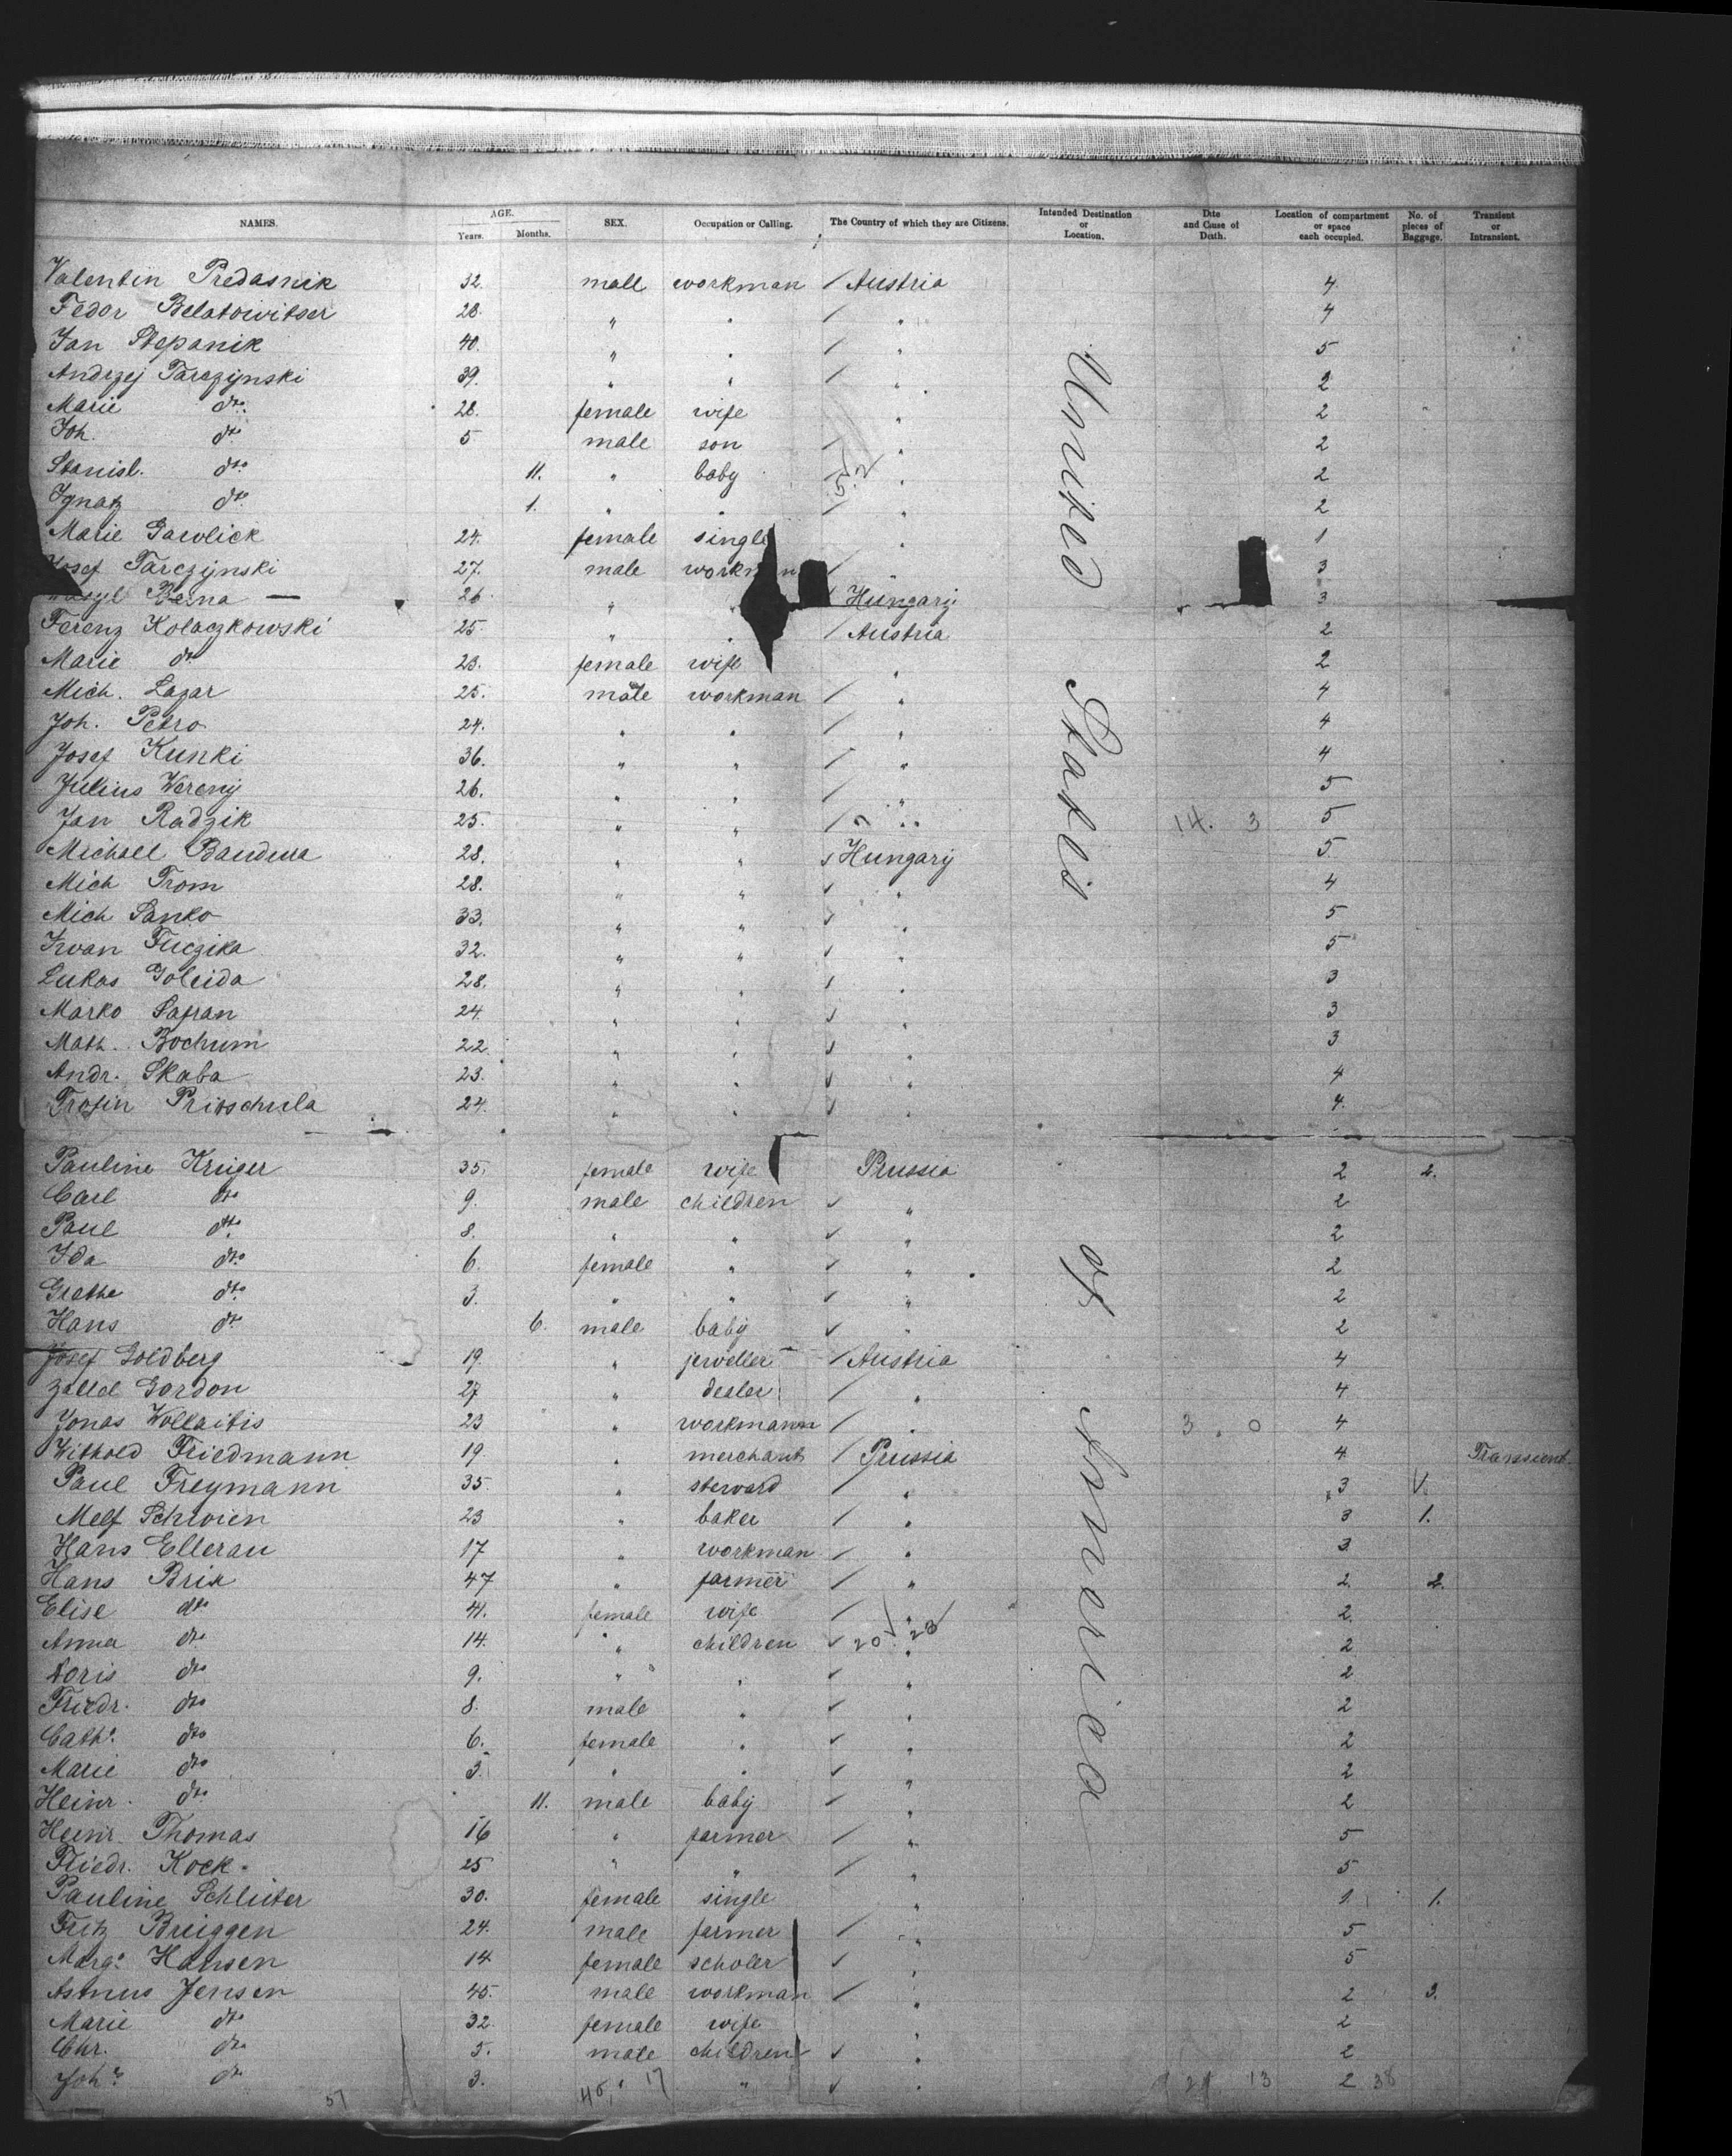 NAMES. AGE. Years. Months. SEX. Occupation or Calling. The Country of which they are Citizens. Intended Destination or Location. Date and Cause of Death. Location of compartment or space each occupied. No. of pieces of Baggage. Transient or Intransient.
United States of America
Valentin Predasnik 32. male workman / Austria 4.
Fedor Belatowitser 28. " " / " 4
Jan Stepanik 40. " " / " 5
Andrzej Tarczynski 39. " " / " 2
Marie dto. 28. female wife " 2
Joh. dto. 5 male son / " 2
Stanisl. dto. 11. " baby / " 2
Ignatz dto. 1. " " / " 2
Marie Gawlick 24. female single " 1
Josef Tarczynski 27. male workman / " 3
Bena — 26 " " / Hungary 3
Ferenz Kolaczkowski 25. " " / Austria 2
Marie dto 23. female wife " 2
Mich. Lazar 25. male workman / " 4
Joh. Petro 24. " " / " 4
Josef Kunki 36. " " / " 4
Julius Wereny 26. " " / " 5
Jan Radzik 25. " " / " 14. 3 5
Michael Bandura 28. " " ✓ Hungary 5.
Mich Trom 28. " " ✓ " 4
Mich Sanko 33. " " ✓ " 5
Iwan Fuczika 32. " " ✓ " 5
Lukas Goleida 28. " " ✓ " 3
Marko Safran 24. " " ✓ " 3
Math. Bochum 22. " " ✓ " 3
Andr. Skaba 23. " " ✓ " 4
Trofin Prioschula 24. " " ✓ " 4.
Pauline Krüger 35. female wife Prussia 2 2.
Carl dto 9. male children ✓ " 2
Paul dto. 8. " " ✓ " 2
Ida dto. 6. female " ✓ " 2
Grethe dto. 3. " " ✓ " 2
Hans dto 6. male baby ✓ " 2
Josef Goldberg 19. " jeweller / Austria 4
Gordon 27 " dealer / " 4
Jonas Wollaitis 23 " workmann / " 3. 0 4
Withold Friedmann 19. " merchant / Prussia 4 Transient
Paul Freymann 35. " steward / " 3 V.
Melf Schwien 23 " baker / " 3 1.
Hans Ellerau 17 " workman / " 3.
Hans Brix 47 " farmer / " 2. 2.
Elise dto 41. female wife / " 2.
Anna dto. 14. " children ✓ 20 23 " 2
Doris dto 9. " " ✓ " 2
Friedr. dto 8. male " ✓ " 2
Cath. dto 6. female " ✓ " 2
Marie dto 3. " " ✓ " 2
Heinr. dto. 11. male baby ✓ " 2
Heinr. Thomas 16 " farmer / " 5
Friedr. Kock. 25 " " / " 5
Pauline Schlüter 30. female single " 1. 1.
Fritz Brüggen 24. male farmer / " 5
Marg. Hansen 14 female scholer ✓ " 5
Asmus Jensen 45. male workman / " 2 3.
Marie dto 32. female wife " 2
Chr. dto. 5. male children ✓ " 2
Joh. dto 3. " " ✓ " 2 38
57 45, 17 21 13